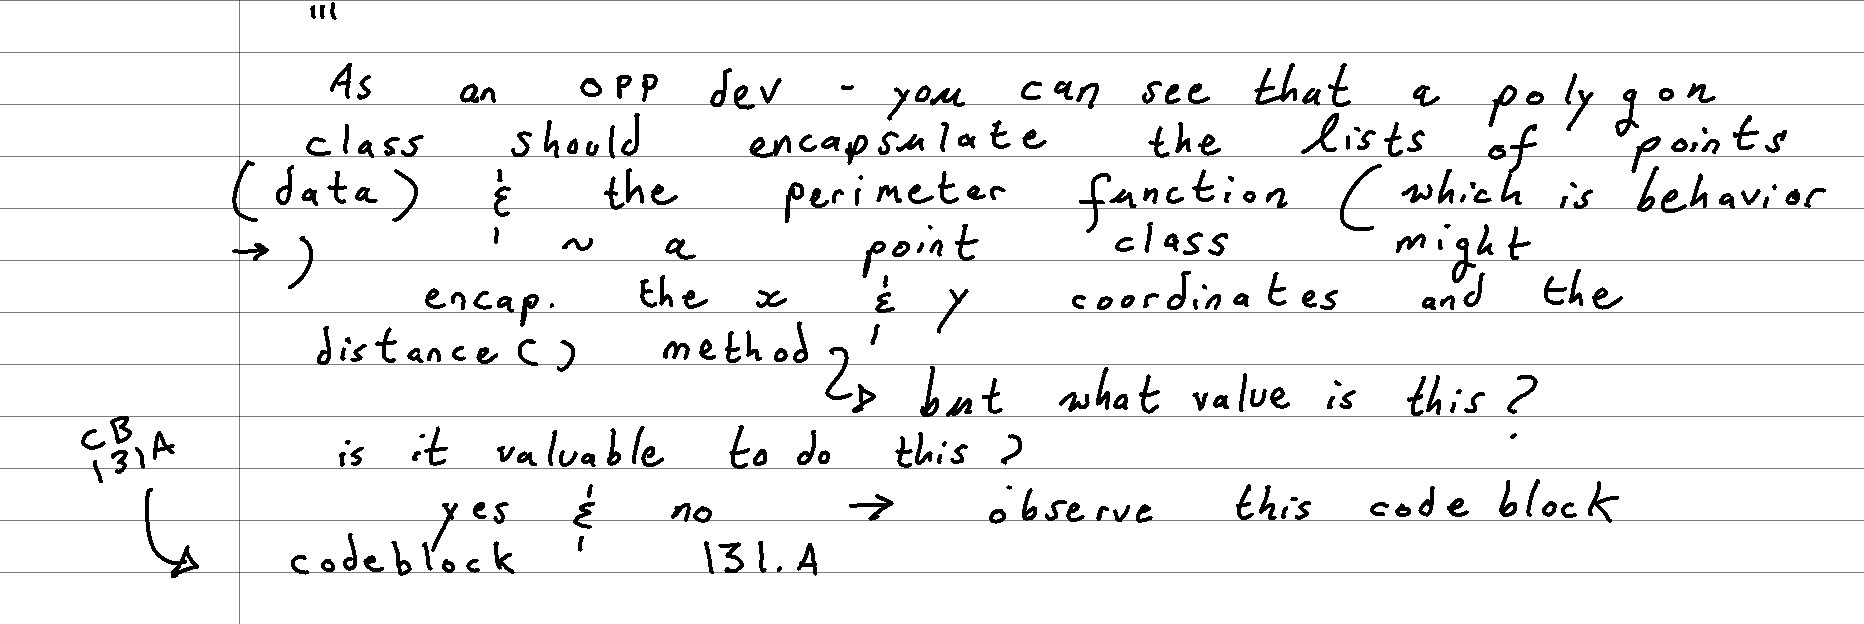 '''
As an OPP dev - you can see that a polygon
class should encapsulate the lists of points
(data) & the perimeter function (which is behavior
→) ~ a point class might
encap. the x & y coordinates and the
distance() method
but what value is this?
is it valuable to do this?
yes & no → observe this code block
CB
131A
codeblock 131.A